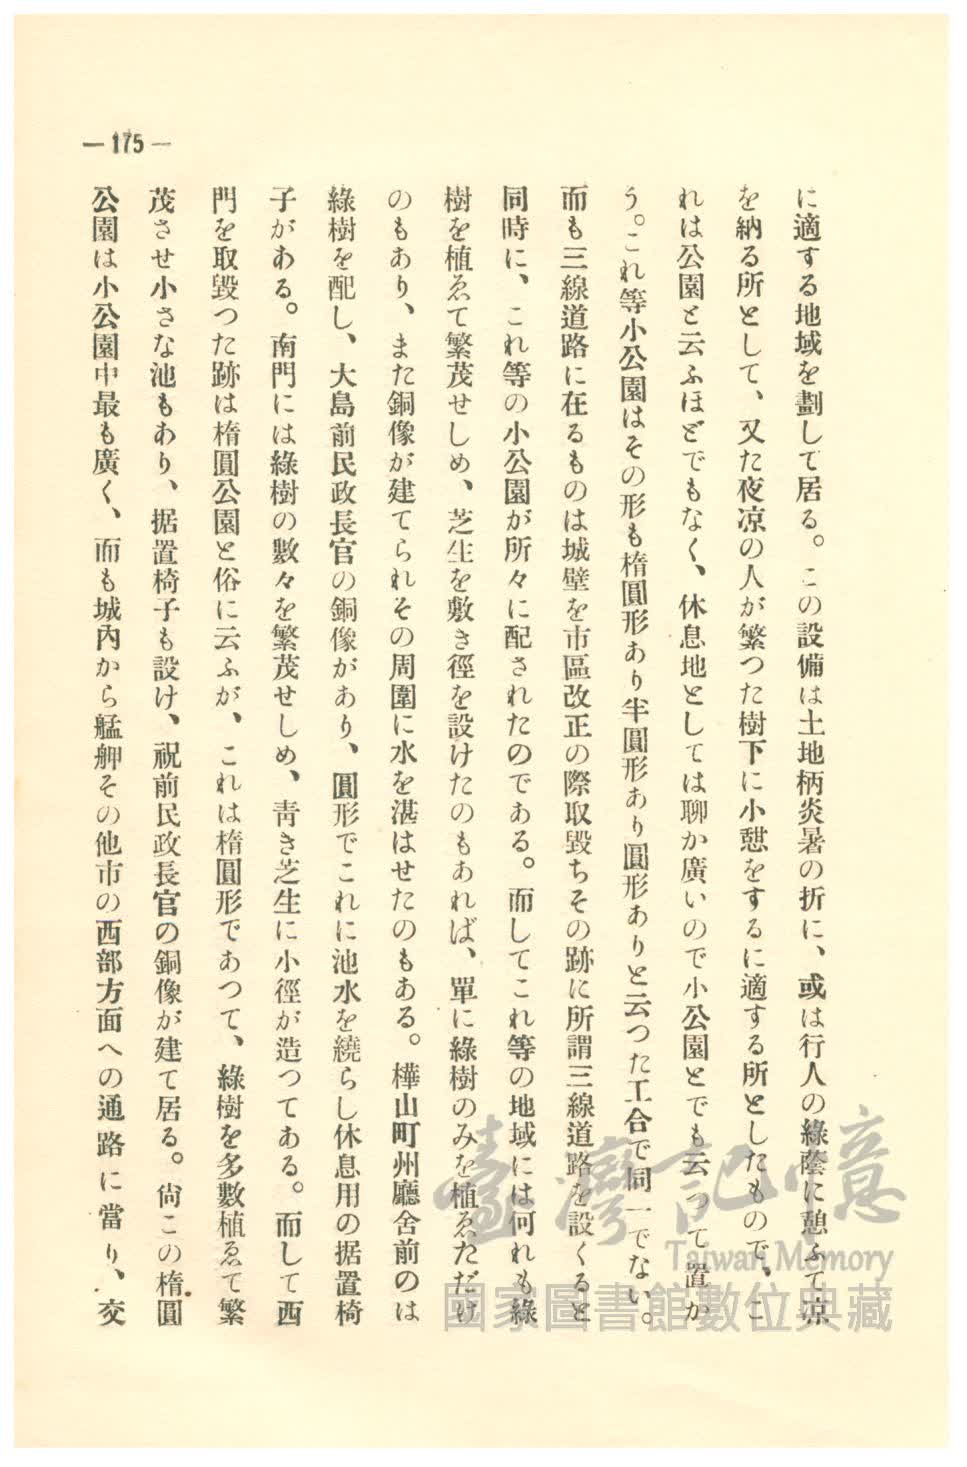 — 175 —
に適する地域を劃して居る。この設備は土地柄炎暑の折に、或は行人の綠蔭に憩ふて凉
を納る所として、又た夜凉の人が繁つた樹下に小憩をするに適する所としたもので、こ
れは公園と云ふほどでもなく、休息地としては聊か廣いので小公園とでも云つて置か
う。これ等小公園はその形も楕圓形あり半圓形あり圓形ありと云つた工合で同一でない。
而も三線道路に在るものは城壁を市區改正の際取毀ちその跡に所謂三線道路を設くると
同時に、これ等の小公園が所々に配されたのである。而してこれ等の地域には何れも綠
樹を植ゑて繁茂せしめ、芝生を敷き徑を設けたのもあれば、單に綠樹のみを植ゑただけ
のもあり、また銅像が建てられその周圍に水を湛はせたのもある。樺山町州廳舍前のは
綠樹を配し、大島前民政長官の銅像があり、圓形でこれに池水を繞らし休息用の据置椅
子がある。南門には綠樹の數々を繁茂せしめ、靑き芝生に小徑が造つてある。而して西
門を取毀つた跡は楕圓公園と俗に云ふが、これは楕圓形であつて、綠樹を多數植ゑて繁
茂させ小さな池もあり、据置椅子も設け、祝前民政長官の銅像が建て居る。尙この楕圓
公園は小公園中最も廣く、而も城內から艋舺その他市の西部方面への通路に當り、交
臺灣記憶
Taiwan Memory
國家圖書館數位典藏